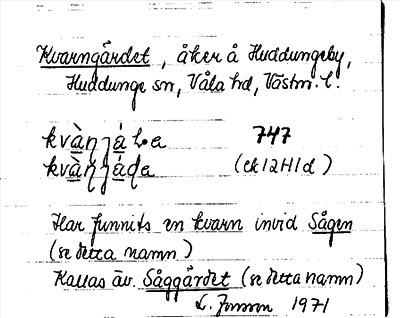 Kvarngärdet, åker å Huddungeby,
Huddunge sn, Våla hd, Västm. l.
747
(ek 12H1d)
Har funnits en kvarn invid Sågen
(se detta namn)
Kallas äv. Såggärdet (se detta namn)
1971